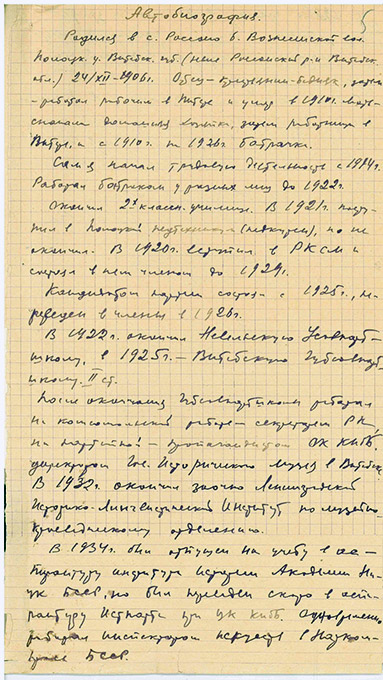 Автобиография.
5
Родился в с. Россоно б. Вознесенской вол.
Полоцк. у. Витебск. губ. (ныне Россонский р-н Витебск.
обл.) 24/XII-1906г. Отец - крестьянин-бедняк, затем
работал рабочим в и умер в 1910г. Мать
сначала домашняя, затем работница в
и с 1910г. по 1926г. батрачка.
Сам я начал трудовую деятельность с 1914г.
Работал батраком у разных лиц до 1922г.
Окончил 2х классн. училище. В 1921г. посту-
пил в Полоцкий педтехникум (педкурсы), но не
окончил. В 1920г. вступил в РКСМ и
состоял в нем членом до 1929г.
Кандидатом партии состоял с 1925г., пе-
реведен в члены в 1926г.
В 1922г. окончил Невельскую Усовпарт-
школу, в 1925г. - Витебскую Губсовпарт-
школу II ст.
После окончания Губсовпартшколы работал
на комсомольской работе - секретарем РК,
на партийной - пропагандистом ОК КП(б)Б,
директором Гос. Исторического музея в Витебске.
В 1932г. окончил заочно Ленинградский
Историко-Лингвистический Институт по музейно-
краеведческому отделению.
В 1934г. был отпущен на учебу в ас-
пирантуру института истории Академии На-
ук БССР, но был переведен скоро в аспи-
рантуру Истпарта при ЦК КП(б)Б. Одновременно
работал инспектором искусств в Нарком-
просе БССР.